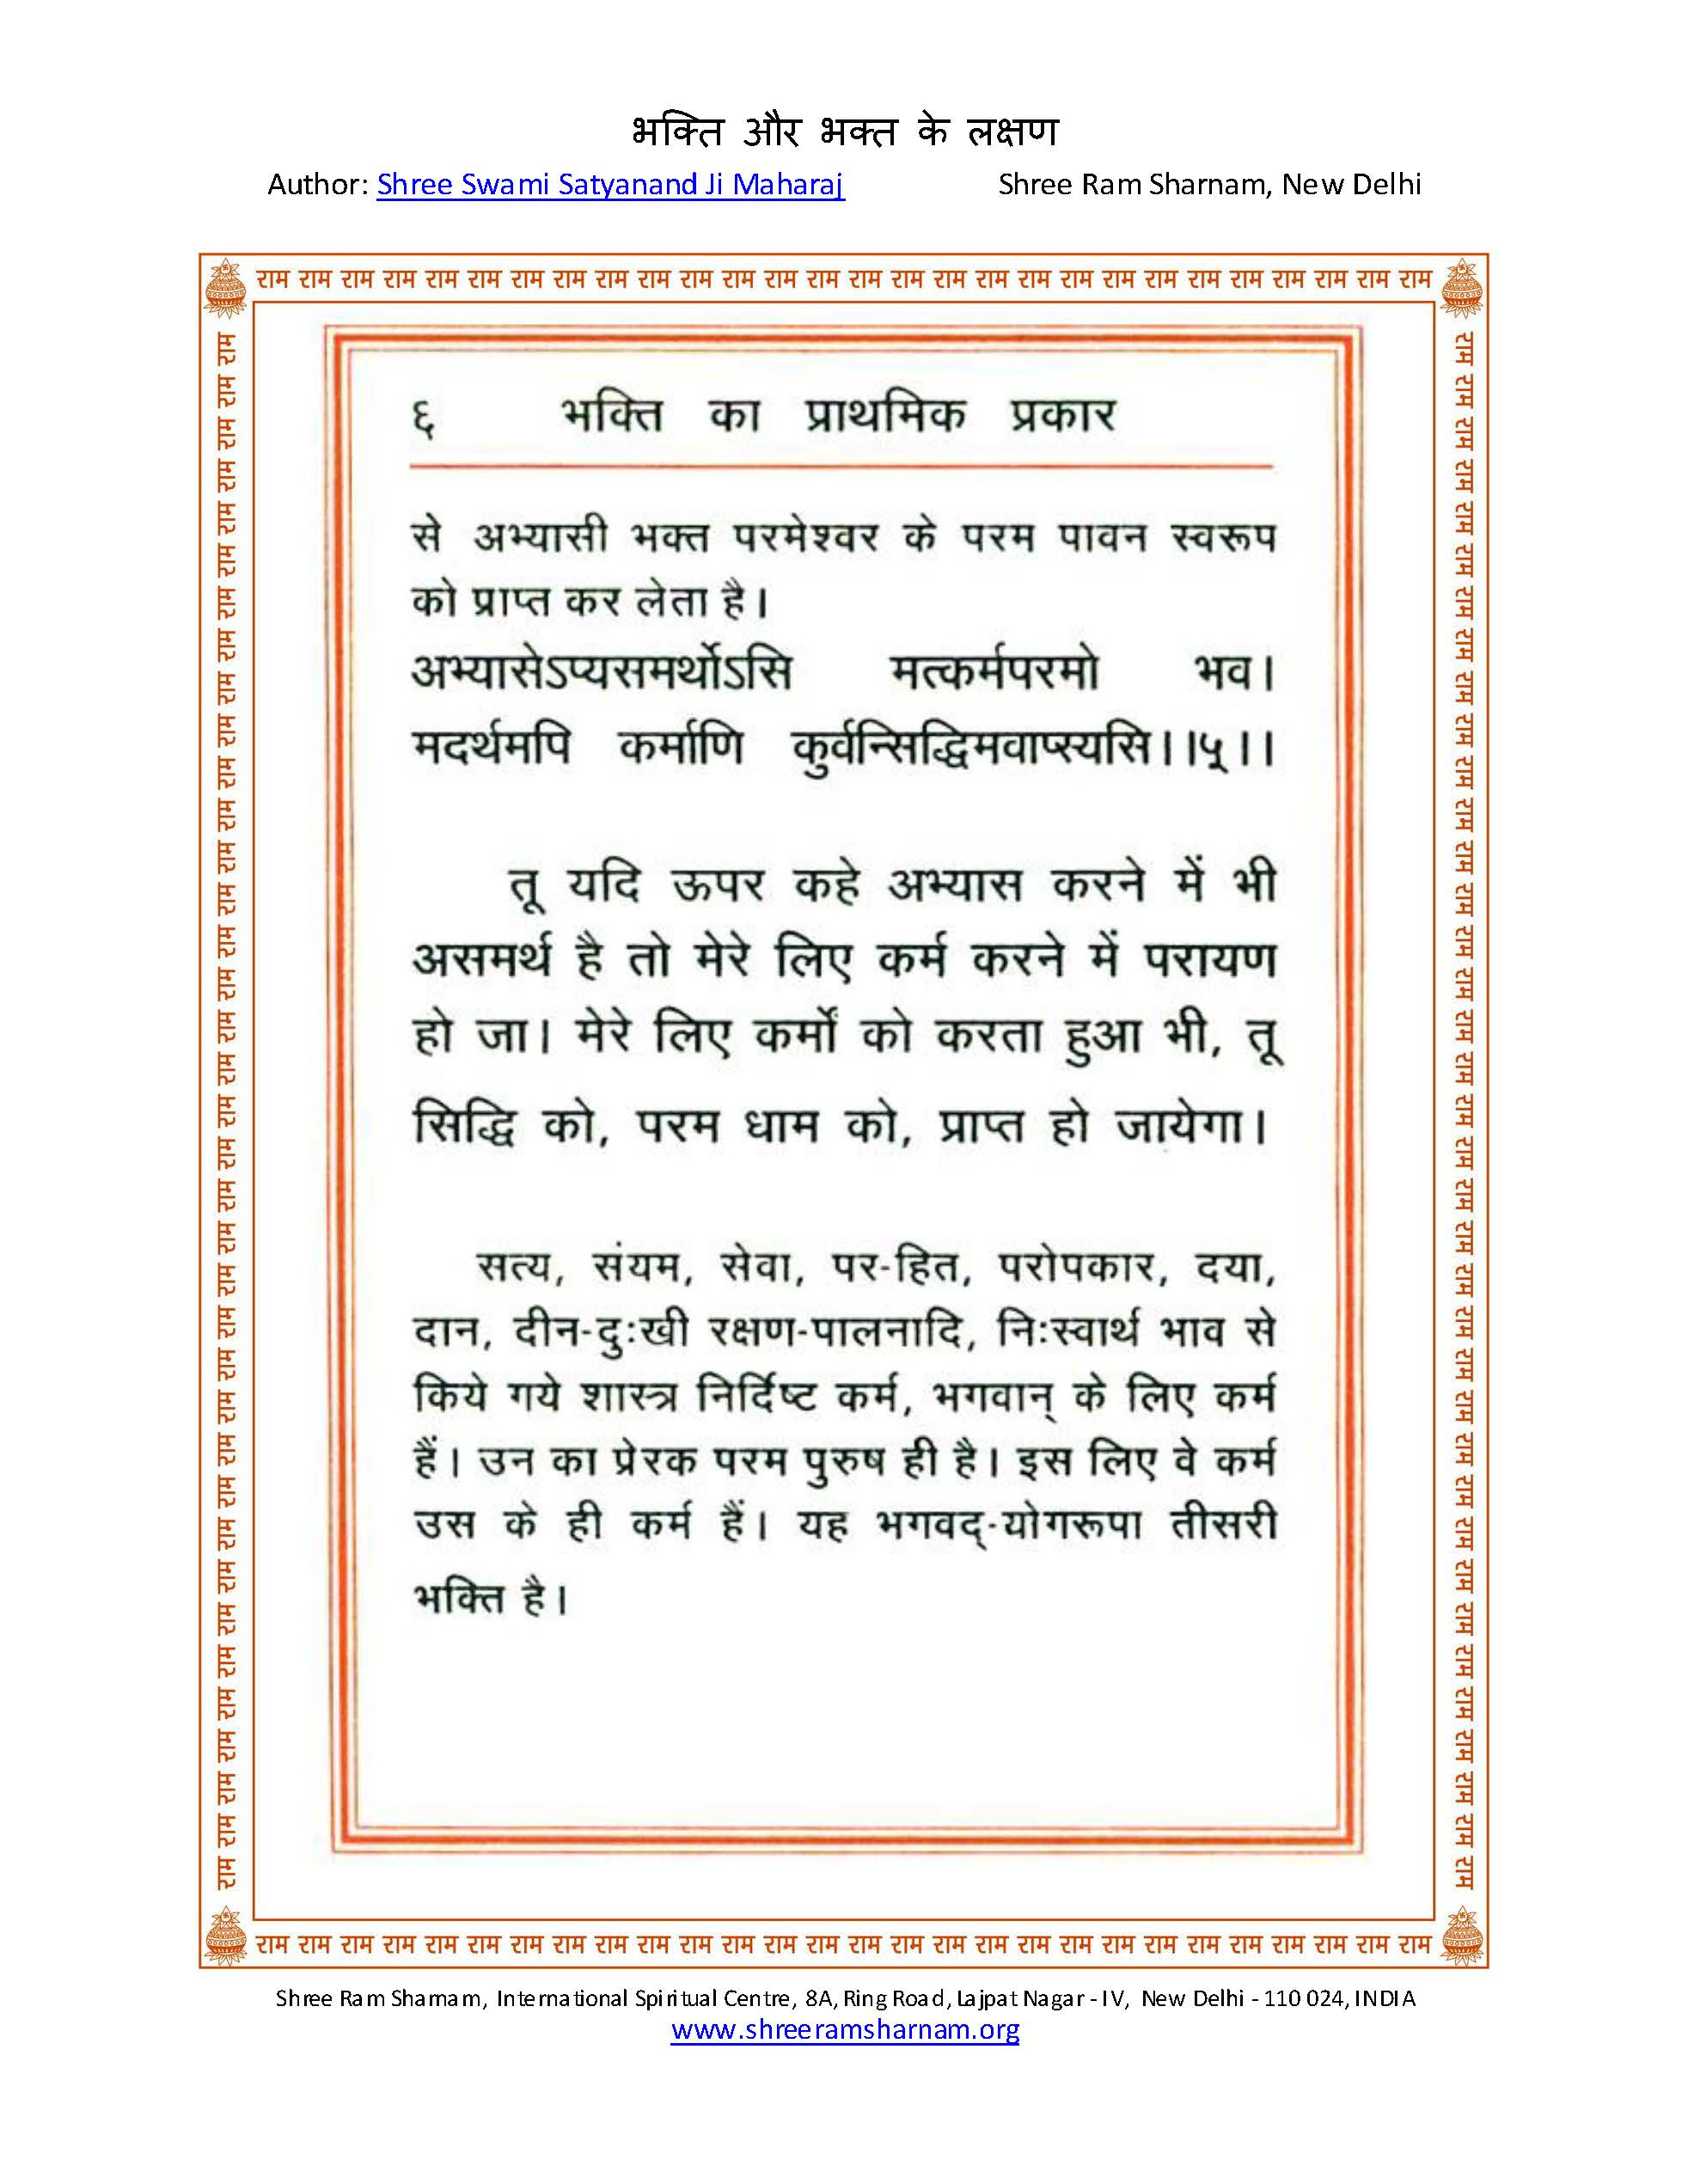 भक्ति और भक्त के लक्षण
Author: Shree Swami Satyanand Ji Maharaj Shree Ram Sharnam, New Delhi
राम राम राम राम राम राम राम राम राम राम राम राम राम राम राम राम राम राम राम राम राम राम राम राम राम राम राम राम
६ भक्ति का प्राथमिक प्रकार
से अभ्यासी भक्त परमेश्वर के परम पावन स्वरूप
को प्राप्त कर लेता है।
अभ्यासेऽप्यसमर्थोऽसि मत्कर्मपरमो भव।
मदर्थमपि कर्माणि कुर्वन्सिद्धिमवाप्स्यसि।।५।।
तू यदि ऊपर कहे अभ्यास करने में भी
असमर्थ है तो मेरे लिए कर्म करने में परायण
हो जा। मेरे लिए कर्मों को करता हुआ भी, तू
सिद्धि को, परम धाम को, प्राप्त हो जायेगा।
सत्य, संयम, सेवा, पर-हित, परोपकार, दया,
दान, दीन-दुःखी रक्षण-पालनादि, निःस्वार्थ भाव से
किये गये शास्त्र निर्दिष्ट कर्म, भगवान् के लिए कर्म
हैं। उन का प्रेरक परम पुरुष ही है। इस लिए वे कर्म
उस के ही कर्म हैं। यह भगवद्-योगरूपा तीसरी
भक्ति है।
राम राम राम राम राम राम राम राम राम राम राम राम राम राम राम राम राम राम राम राम राम राम राम राम राम राम राम राम राम राम राम राम राम राम राम राम राम
राम राम राम राम राम राम राम राम राम राम राम राम राम राम राम राम राम राम राम राम राम राम राम राम राम राम राम राम राम राम राम राम राम राम राम राम राम
राम राम राम राम राम राम राम राम राम राम राम राम राम राम राम राम राम राम राम राम राम राम राम राम राम राम राम राम
Shree Ram Sharnam, International Spiritual Centre, 8A, Ring Road, Lajpat Nagar - IV, New Delhi - 110 024, INDIA
www.shreeramsharnam.org